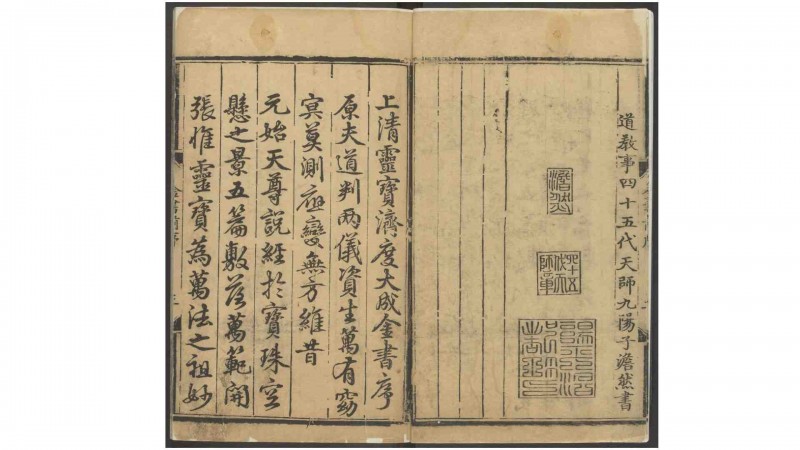 道教事四十五代天師九陽子澹然書
澹然
四十五代天師章
上清靈寶濟度大成金書序
原夫道判兩儀資生萬有窈
冥莫測應變無方維昔
元始天尊說經於寶珠空
懸之景五篇敷落萬範開
張惟靈寶為萬法之祖妙